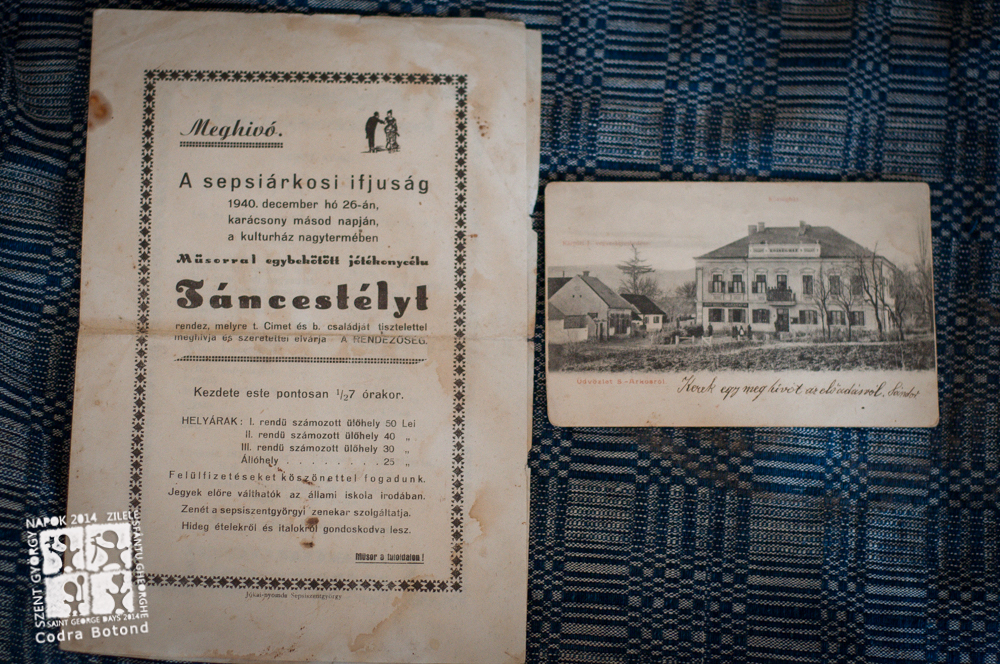 Meghivó.
A sepsiárkosi ifjuság
1940. december hó 26-án,
karácsony másod napján,
a kulturház nagytermében
Müsorral egybekötött jótékonycélu
Táncestélyt
rendez, melyre t. Cimet és b. családját tisztelettel
meghivja és szeretettel elvárja A RENDEZŐSÉG.
Kezdete este pontosan 1/27 órakor.
HELYÁRAK: I. rendü számozott ülőhely 50 Lei
II. rendü számozott ülőhely 40 „
III. rendü számozott ülőhely 30 „
Állóhely . . . . . . . . 25 „
Felülfizetéseket köszönettel fogadunk.
Jegyek előre válthatók az állami iskola irodában.
Zenét a sepsiszentgyörgyi zenekar szolgáltatja.
Hideg ételekről és italokról gondoskodva lesz.
Müsor a tuloldalon!
Jókai-nyomda Sepsiszentgyörgy
Üdvözlet S.-Árkosról
Kérek egy meghívót az előadásról. Sándor
SZENT GYÖRGY NAPOK 2014
ZILELE SFÂNTU GHEORGHE
SAINT GEORGE DAYS 2014
Codra Botond